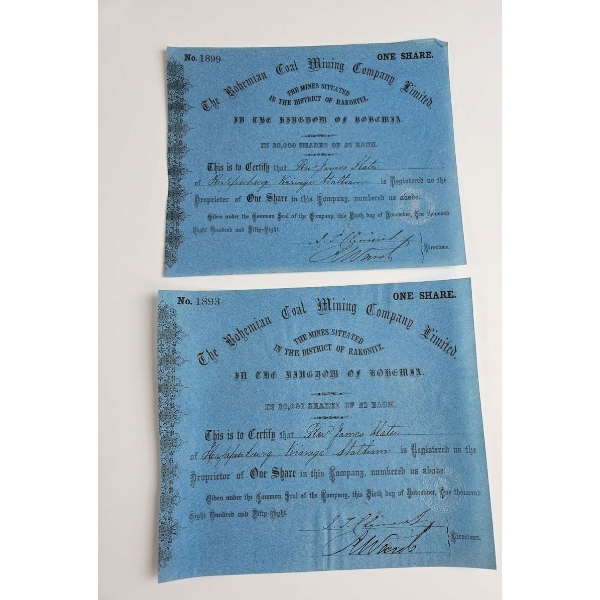 No. 1899 ONE SHARE.
The Bohemian Coal Mining Company Limited.
THE MINES SITUATED
IN THE DISTRICT OF RAKONITZ,
IN THE KINGDOM OF BOHEMIA.
IN 20,000 SHARES OF £1 EACH.
This is to Certify that Revd James Slater
of Vicarage is Registered as the
Proprietor of One Share in this Company, numbered as above.
Given under the Common Seal of the Company, this Ninth day of November, One thousand
Eight Hundred and Fifty-Eight.
Directors.
No. 1893 ONE SHARE.
The Bohemian Coal Mining Company Limited.
THE MINES SITUATED
IN THE DISTRICT OF RAKONITZ,
IN THE KINGDOM OF BOHEMIA.
SHARES OF £1 EACH.
This is to Certify that Revd James Slater
of Vicarage is Registered as the
Proprietor of One Share in this Company, numbered as above.
Given under the Common Seal of the Company, this Ninth day of November, One thousand
Eight Hundred and Fifty-Eight.
Directors.